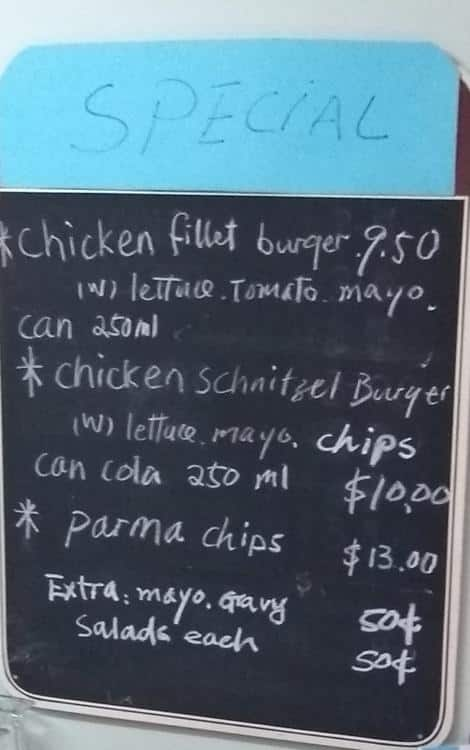 SPECIAL
*chicken fillet burger.9.50
(W) lettuce.Tomato.mayo.
can 250ml
*chicken schnitzel Burger
(W) lettuce.mayo. chips
can cola 250 ml $10.00
* parma chips $13.00
Extra: mayo. Gravy 50¢
Salads each 50¢